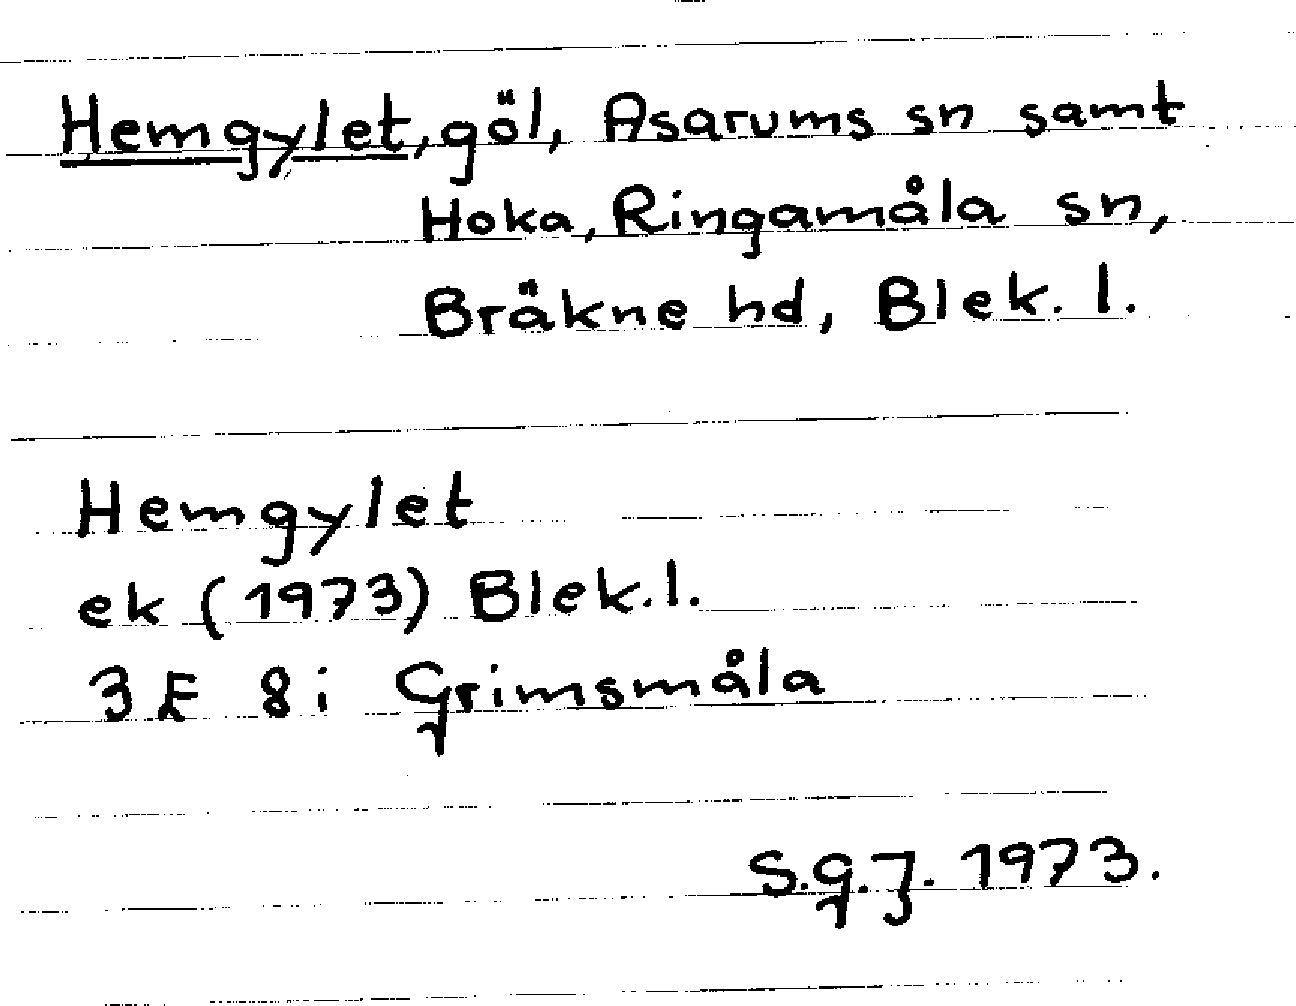 Hemgylet, göl, Asarums sn samt
Hoka, Ringamåla sn,
Bräkne hd, Blek. l.
Hemgylet
ek (1973) Blek. l.
3 F 8 i Grimsmåla
S.G.J. 1973.